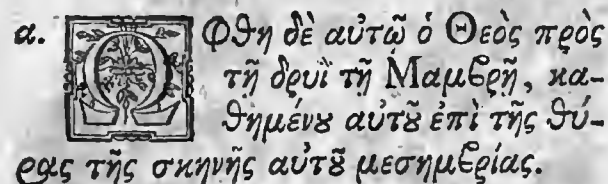 α. ΩΦθη δὲ αὐτῷ ὁ Θεὸς πρὸς
τῇ δρυῒ τῇ Μαμβρῇ, κα-
θημένȣ αὐτȣ͂ ἐπὶ τῆς θύ-
ρας τῆς σκηνῆς αὐτȣ͂ μεσημβρίας.